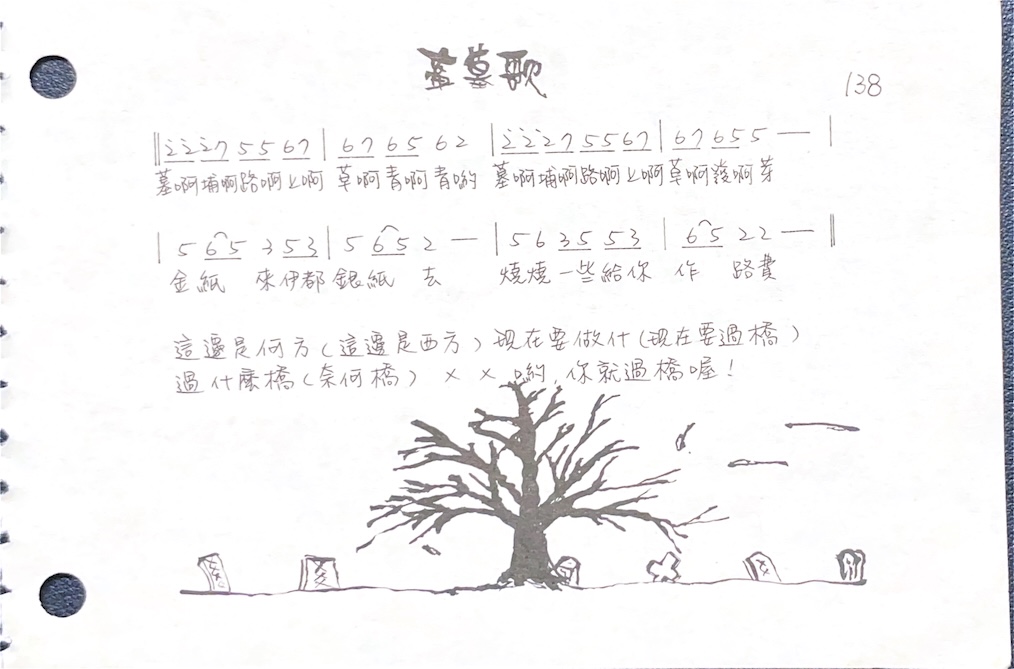 墓墓歌
138
‖ i i i 7 5 5 6 7 | 6 7 6 5 6 2 | i i i 7 5 5 6 7 | 6 7 6 5 5 — |
墓啊埔啊路啊上啊 草啊青啊青喲 墓啊埔啊路啊上啊草啊發啊芽
| 5 6 5 3 5 3 | 5 6 5 2 — | 5 6 3 5 5 3 | 6 5 2 2 — ‖
金紙 來伊都 銀紙 去 燒燒一些給你 作 路費
這邊是何方(這邊是西方)現在要做什(現在要過橋)
過什麼橋(奈何橋) × × 喲,你就過橋喔!